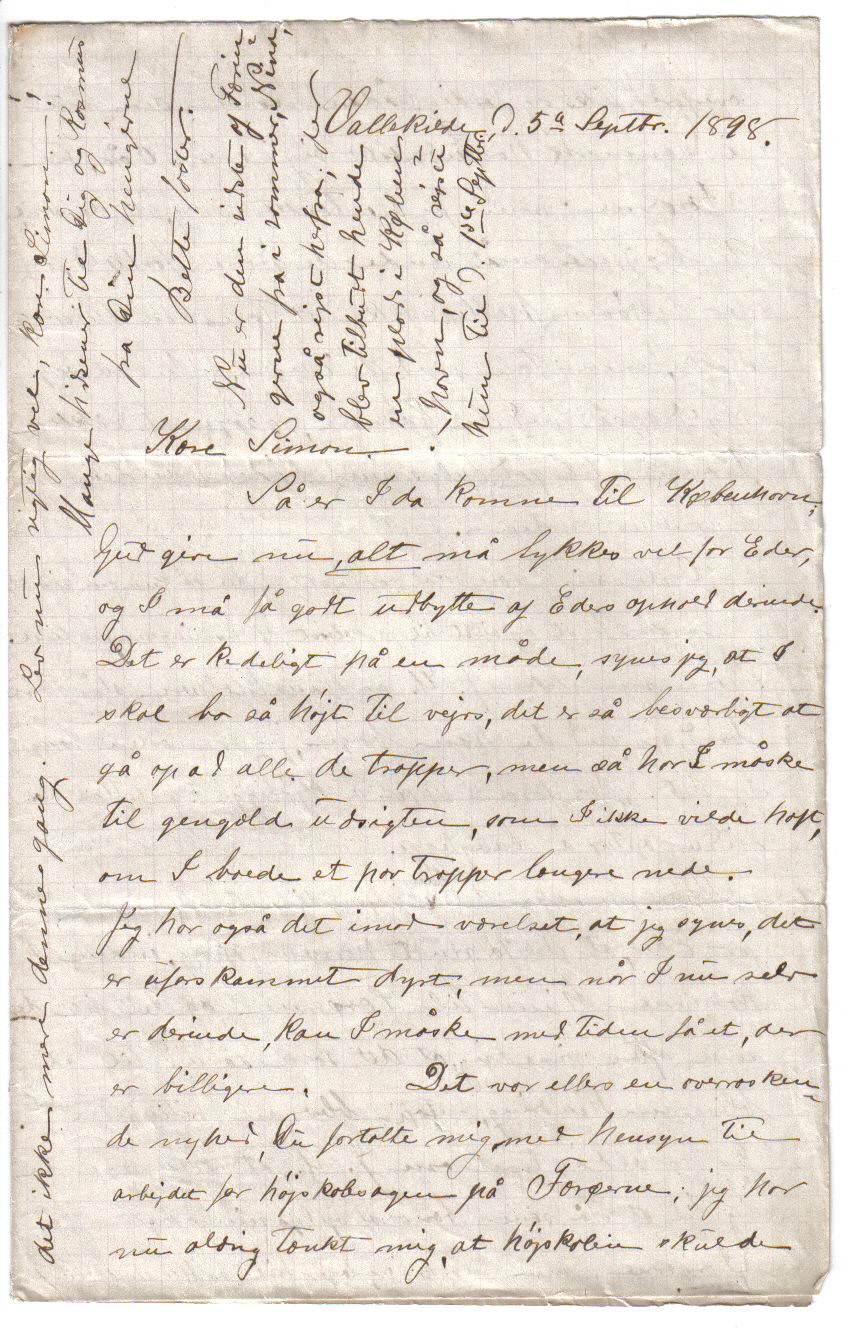 Vallekilde, d. 5te Septbr. 1898.
Kære Simon.
Så er I da komne til København;
Gud give nu, alt må lykkes vel for Eder,
og I må få godt udbytte af Eders ophold derinde.
Det er kedeligt på en måde, synes jeg, at I
skal bo så højt til vejrs, det er så besværligt at
gå op ad alle de trapper, men så har I måske
til gengæld udsigten, som I ikke vilde haft,
om I boede et par trapper længere nede.
Jeg har også det imod værelset, at jeg synes, det
er uforskammet dyrt; men når I nu selv
er derinde, kan I måske med tiden få et, der
er billigere. Det var ellers en overrasken-
de nyhed, Du fortalte mig med hensyn til
arbejdet for højskolesagen på Færøerne; jeg har
nu aldrig tænkt mig, at højskolen skulde
det ikke mere denne gang. Lev nu rigtig vel, kære Simon!
Mange hilsener til Dig og Rasmus
fra Din hengivne
Bette søster.
Nu er den sidste af Færin-
gerne fra i sommer, Nina,
også rejst herfra; der
blev tilbudt hende
en plads i Køben-
havn, og så rejste
hun til d. 1ste Septbr.